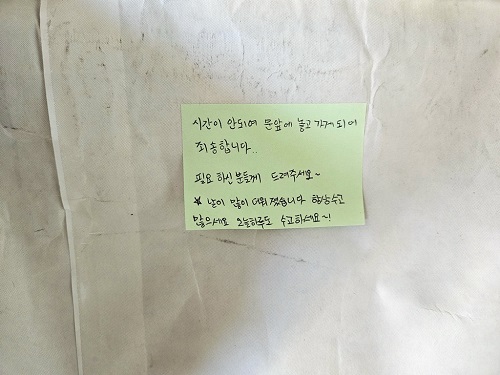 시간이 안되여 문앞에 놓고 가게되어
죄송합니다..
필요하신분들께 드려주세요~
★ 날이 많이 더워졌습니다 항상수고
많으세요 오늘하루도 수고하세요~!